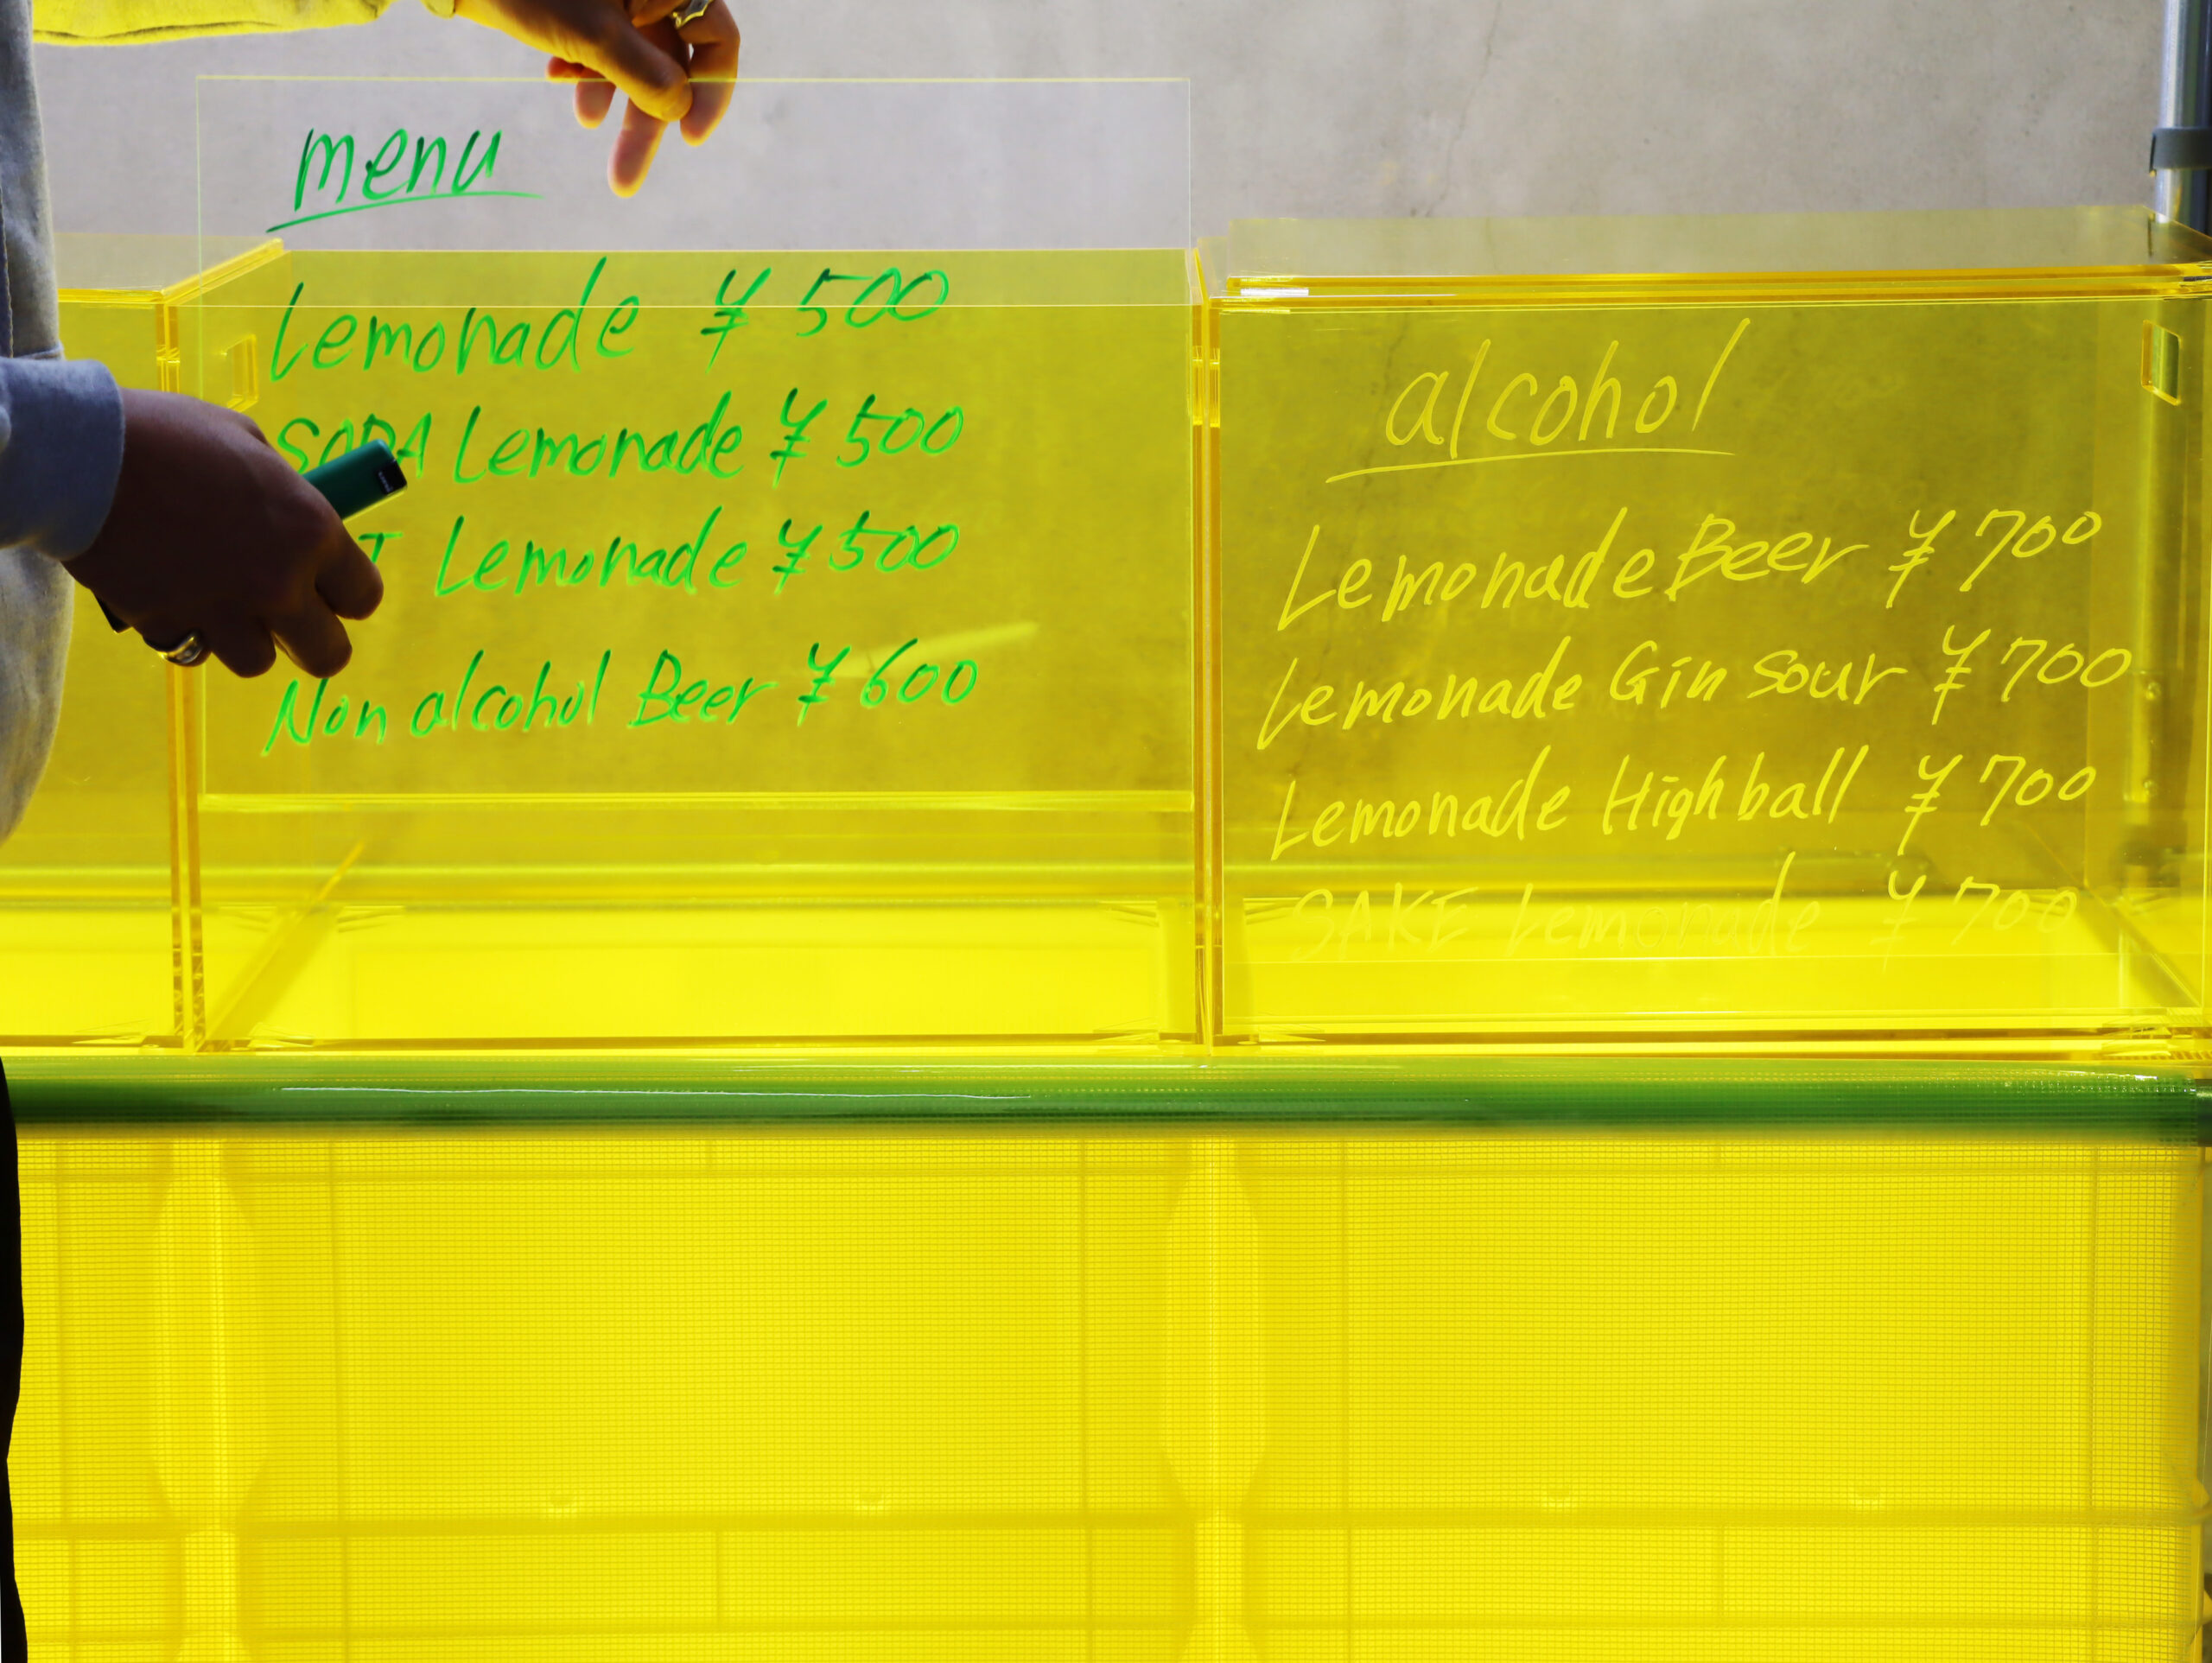 menu
Lemonade ¥500
SODA Lemonade ¥500
Lemonade ¥500
Non alcohol Beer ¥600
alcohol
Lemonade Beer ¥700
Lemonade Gin Sour ¥700
Lemonade Highball ¥700
SAKE Lemonade ¥700